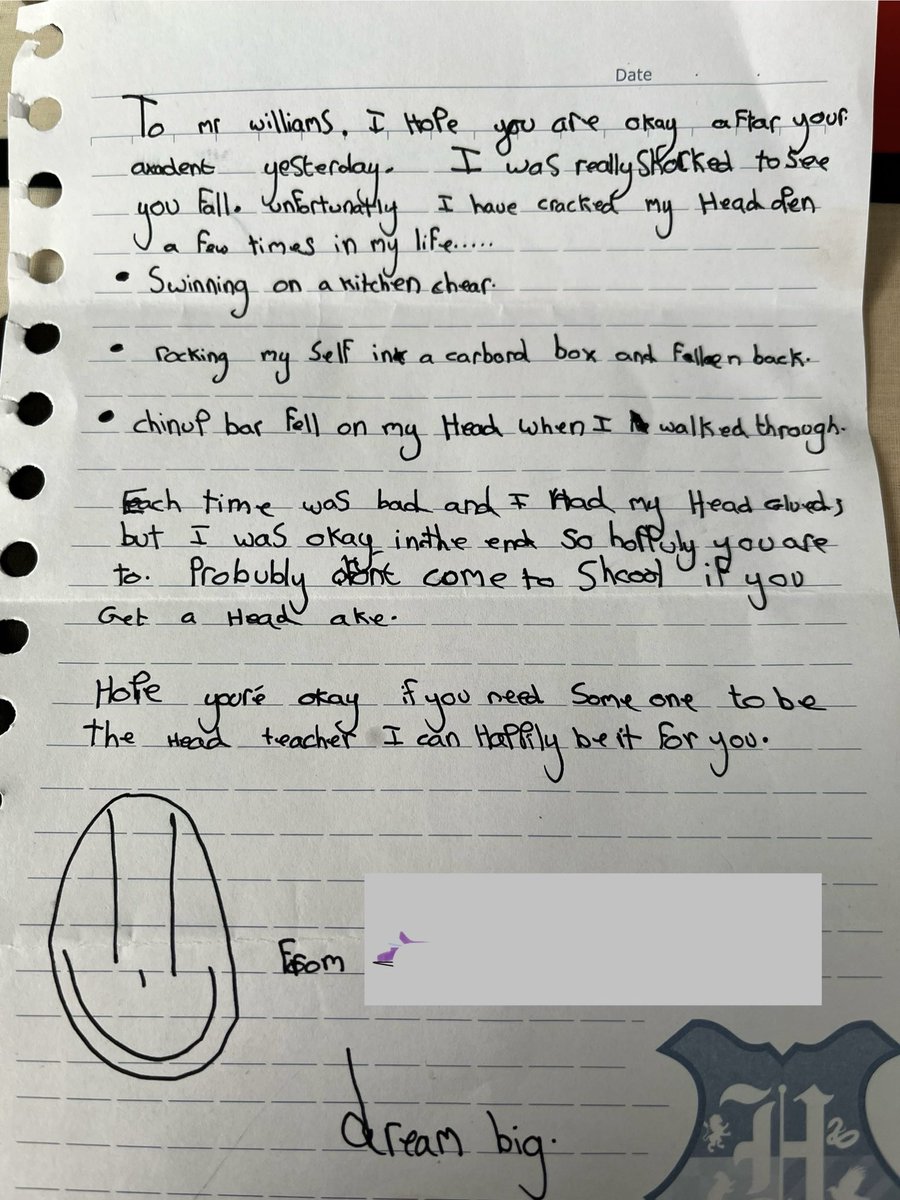 Date
To mr williams, I Hope you are okay aftar your
axadent yesterday. I was really Shocked to see
you fall. unfortunatly I have cracked my Head open
a few times in my life.....
• Swinning on a kitchen chear.
• rocking my self in a carbord box and fallen back.
• chinup bar fell on my Head when I walked through.
Each time was bad and I Had my Head glued;
but I was okay in the end so hoffuly you are
to. Probubly dont come to Shcool if you
Get a Head ake.
Hope you're okay if you need Some one to be
the Head teacher I can Happily be it for you.
From
dream big.
H